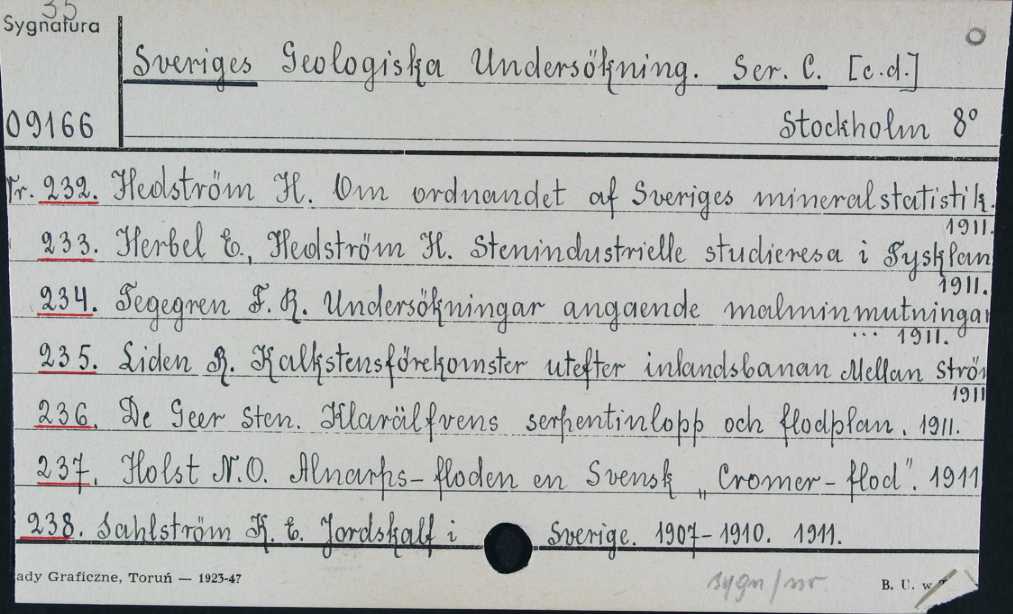 35
Sygnatura
Sveriges Geologiska Undersökning. Ser. C. [c.d.]
09166
Stockholm 8°
Nr. 232. Hedström H. Om ordnandet af Sveriges mineralstatistik.
1911.
233. Herbel E., Hedström H. Stenindustrielle studieresa i Tysklan
1911.
234. Tegegren F. R. Undersökningar angaende malminmutningar
... 1911.
235. Liden R. Kalkstensförekomster utefter inlandsbanan Mellan Strö
1911
236. De Geer Sten. Klarälfvens serpentinlopp och flodplan. 1911.
237. Holst N.O. Alnarps-floden en Svensk „Cromer-flod". 1911
238. Sahlström K. E. Jordskalf i Sverige. 1907-1910. 1911.
ady Graficzne, Toruń — 1923-47
sygn/nr
B. U. w